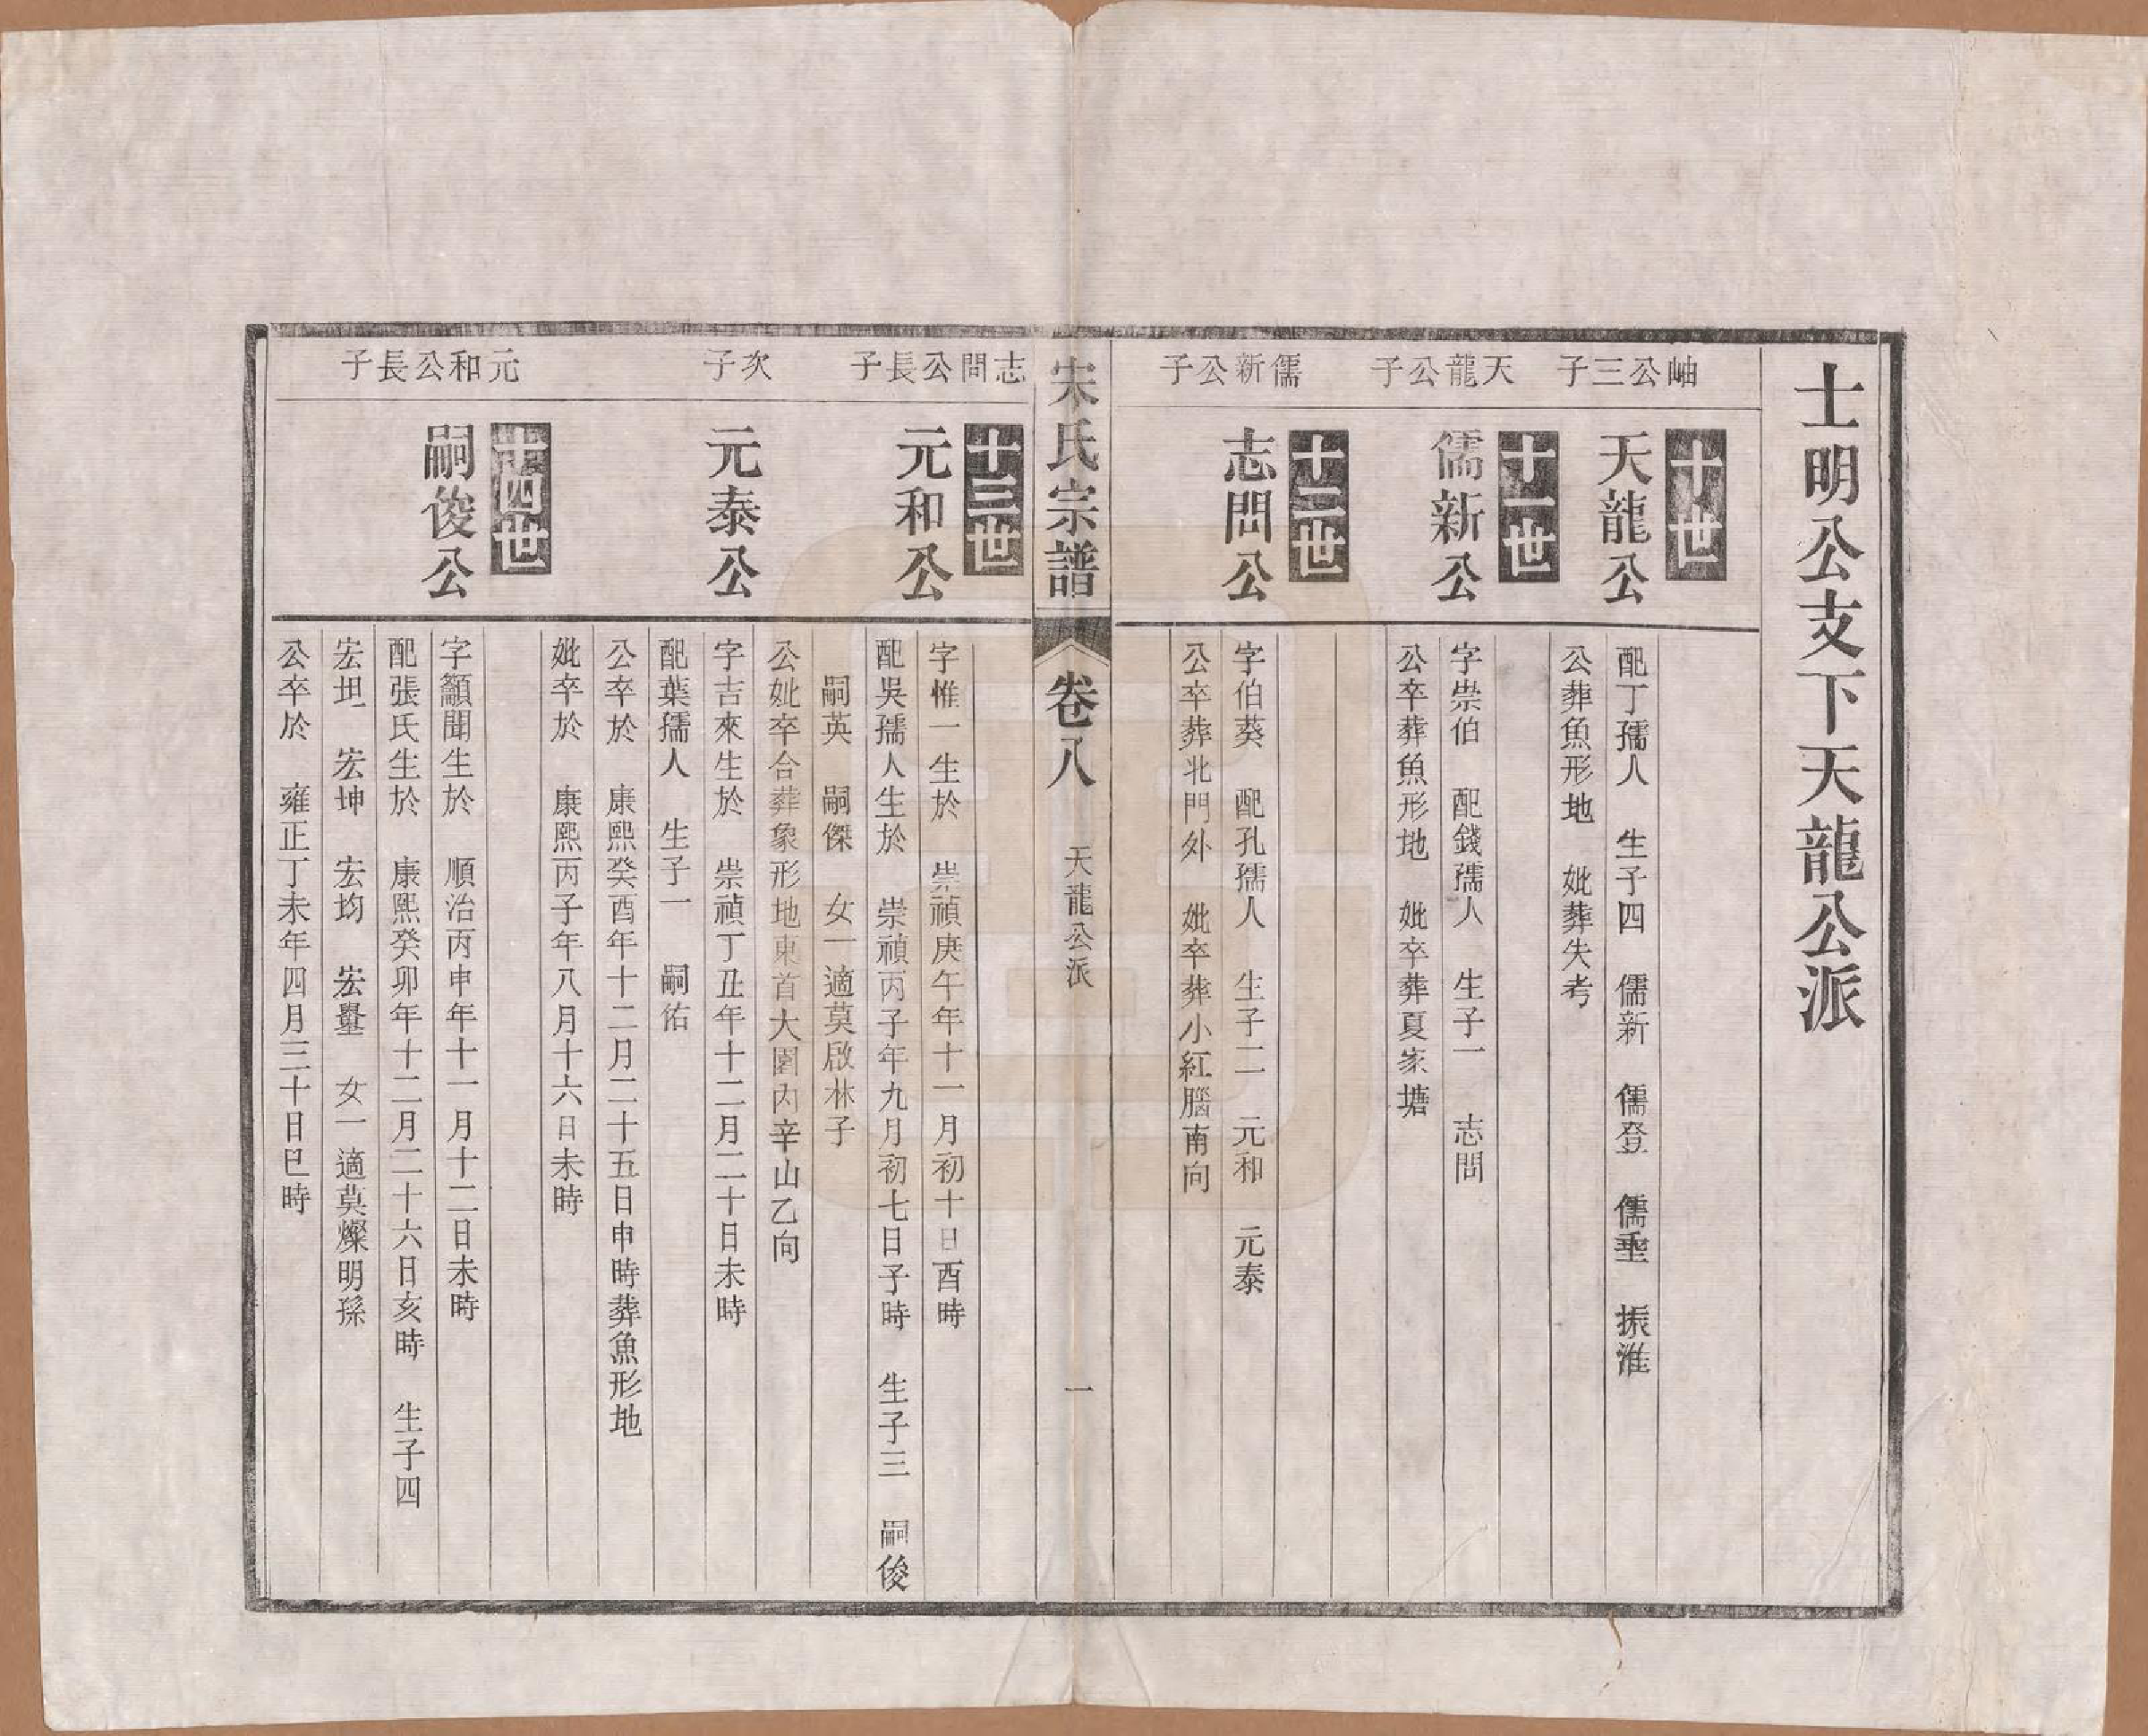 士明公支下天龍公派
十世
岫公三子
天龍公
配丁孺人 生子四 儒新 儒登 儒聖 振淮
公葬魚形地 妣葬失考
十一世
天龍公子
儒新公
字崇伯 配錢孺人 生子一 志問
公卒葬魚形地 妣卒葬夏家塘
十二世
儒新公子
志問公
字伯葵 配孔孺人 生子二 元和 元泰
公卒葬北門外 妣卒葬小紅腦南向
宋氏宗譜
卷八
天龍公派
一
十三世
志問公長子
元和公
字惟一生於 崇禎庚午年十一月初十日酉時
配吳孺人生於 崇禎丙子年九月初七日子時 生子三 嗣俊
嗣英 嗣傑 女一適莫啟林子
公妣卒合葬象形地東首大園內辛山乙向
次子
元泰公
字吉來生於 崇禎丁丑年十二月二十日未時
配葉孺人 生子一 嗣佑
公卒於 康熙癸酉年十二月二十五日申時葬魚形地
妣卒於 康熙丙子年八月十六日未時
十四世
元和公長子
嗣俊公
字籲聞生於 順治丙申年十一月十二日未時
配張氏生於 康熙癸卯年十二月二十六日亥時 生子四
宏坦 宏坤 宏均 宏壘 女一適莫燦明孫
公卒於 雍正丁未年四月三十日巳時